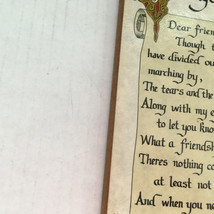 Dear frien
Though t
have divided ou
marching by,
The tears and the
Along with my e
to let you know
What a friendsh
Theres nothing co
at least not
And when you ne